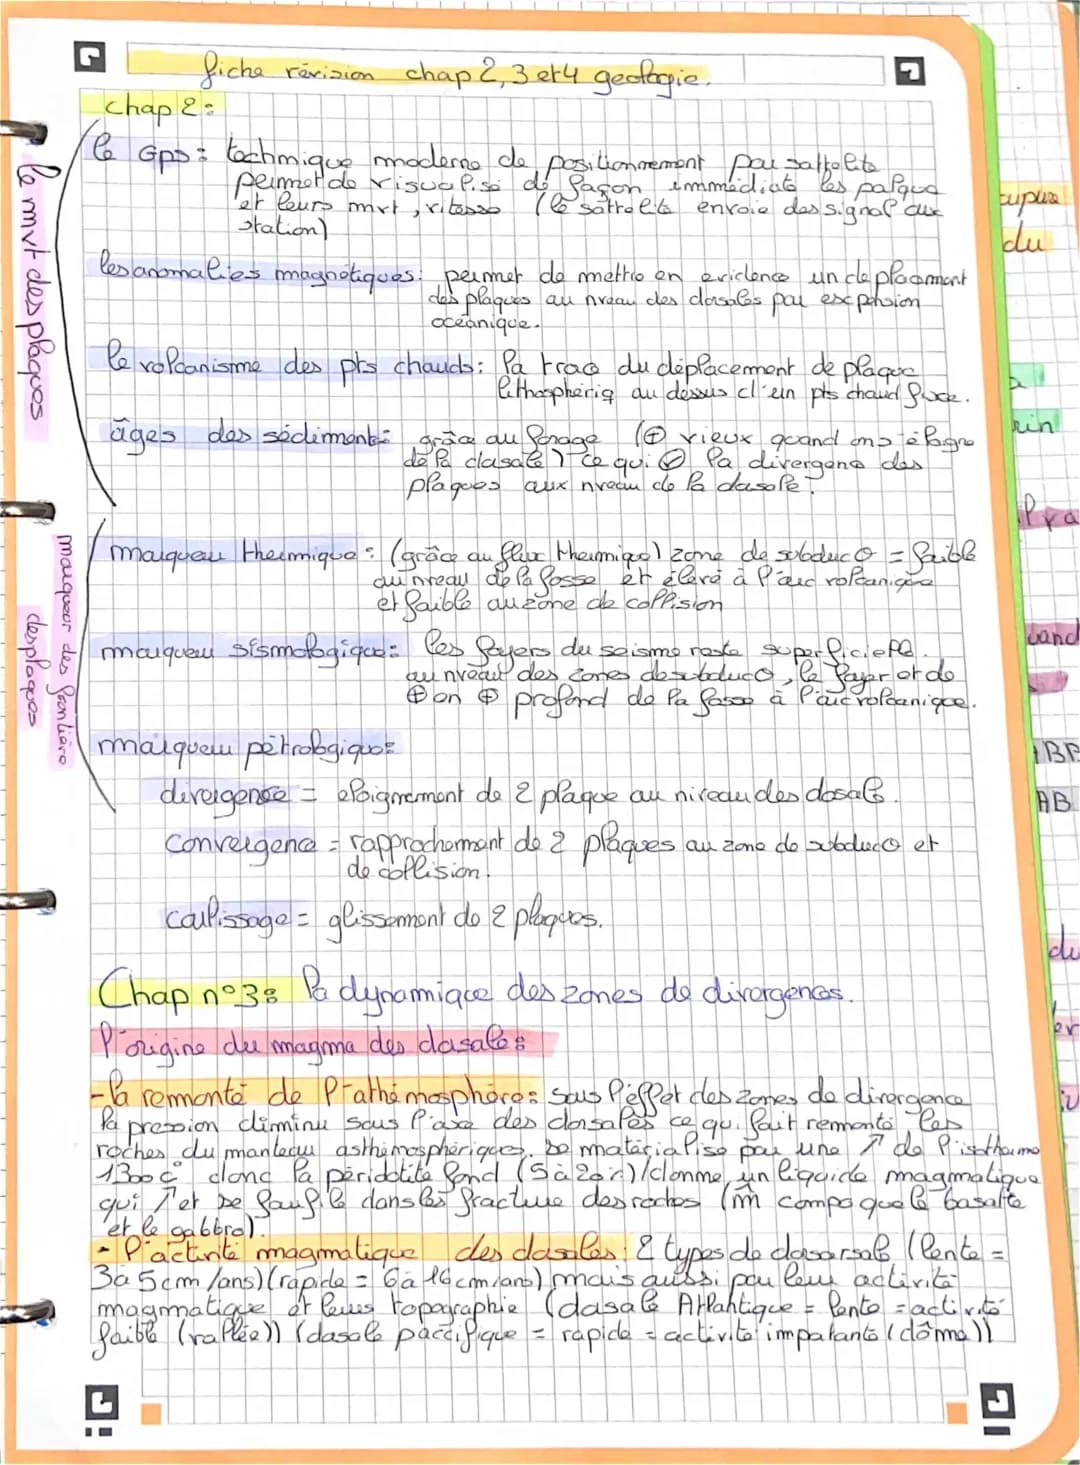 fiche révision chap 2, 3 et 4 geologie.
Chap 2:
le mvt des plaques
le Gps: technique moderne de positionnement par sattelite
permet de visualisé de façon immédiate les palque
et leurs mvt, vitesse (le sattelite envoie des signal aux
station)
les anomalies magnétiques: permet de mettre en evidence un deplacement
des plaques au nveau des dorsales par expension
océanique.
le volcanisme des pts chauds: la trace du déplacement de plaque
lithosphériq au dessus d'un pts chaud fixe.
âges des sédiments: grâce au forage (⊕ vieux quand on s'éloigne
de la dorsale) ce qui la divergence des
plaques aux nveau de la dorsale.
marqueur des frontière
des plaques
marqueur thermique: (grâce au flux thermique) zone de subduc° = faible
au nveau de la fosse et élevé à l'arc volcanique
et faible au zone de collision
marqueur sismologique: les foyers du seisme reste superficielle.
au nveau des zones de subduc°, le foyer et de
⊕ en ⊕ profond de la fosse à l'arc volcanique.
marqueur pétrologique:
divergence = eloignement de 2 plaque au niveau des dosale.
convergence = rapprochement de 2 plaques au zone de subduc° et
de collision.
coulissage = glissement de 2 plaques.
Chap n°3: la dynamique des zones de divergences.
l'origine du magma des dosale:
- la remonté de l'athénosphère: sous l'effet des zones de divergence
la pression diminu sous l'axe des dorsales ce qui fait remonté les
roches du manteau asthénosphérique. se matérialise par une ↗ de l'isotherme
1300 c° donc la péridotite fond (5 à 20%)/donne un liquide magmatique
qui ↑ et se faufile dans les fracture des roches (m̂ compo que le basalte
et le gabbro).
- l'activité magmatique des dosales: 2 types de dosarsale (lente =
3 à 5 cm/ans) (rapide = 6 à 16 cm/ans) mais aussi par leur activité
magmatique et leurs topographie (dosale Atlantique = lente = activité
faible (vallée)) (dosale pacifique = rapide = activité importante (dôme))
du
rin
uand
ABP
AB
du
er